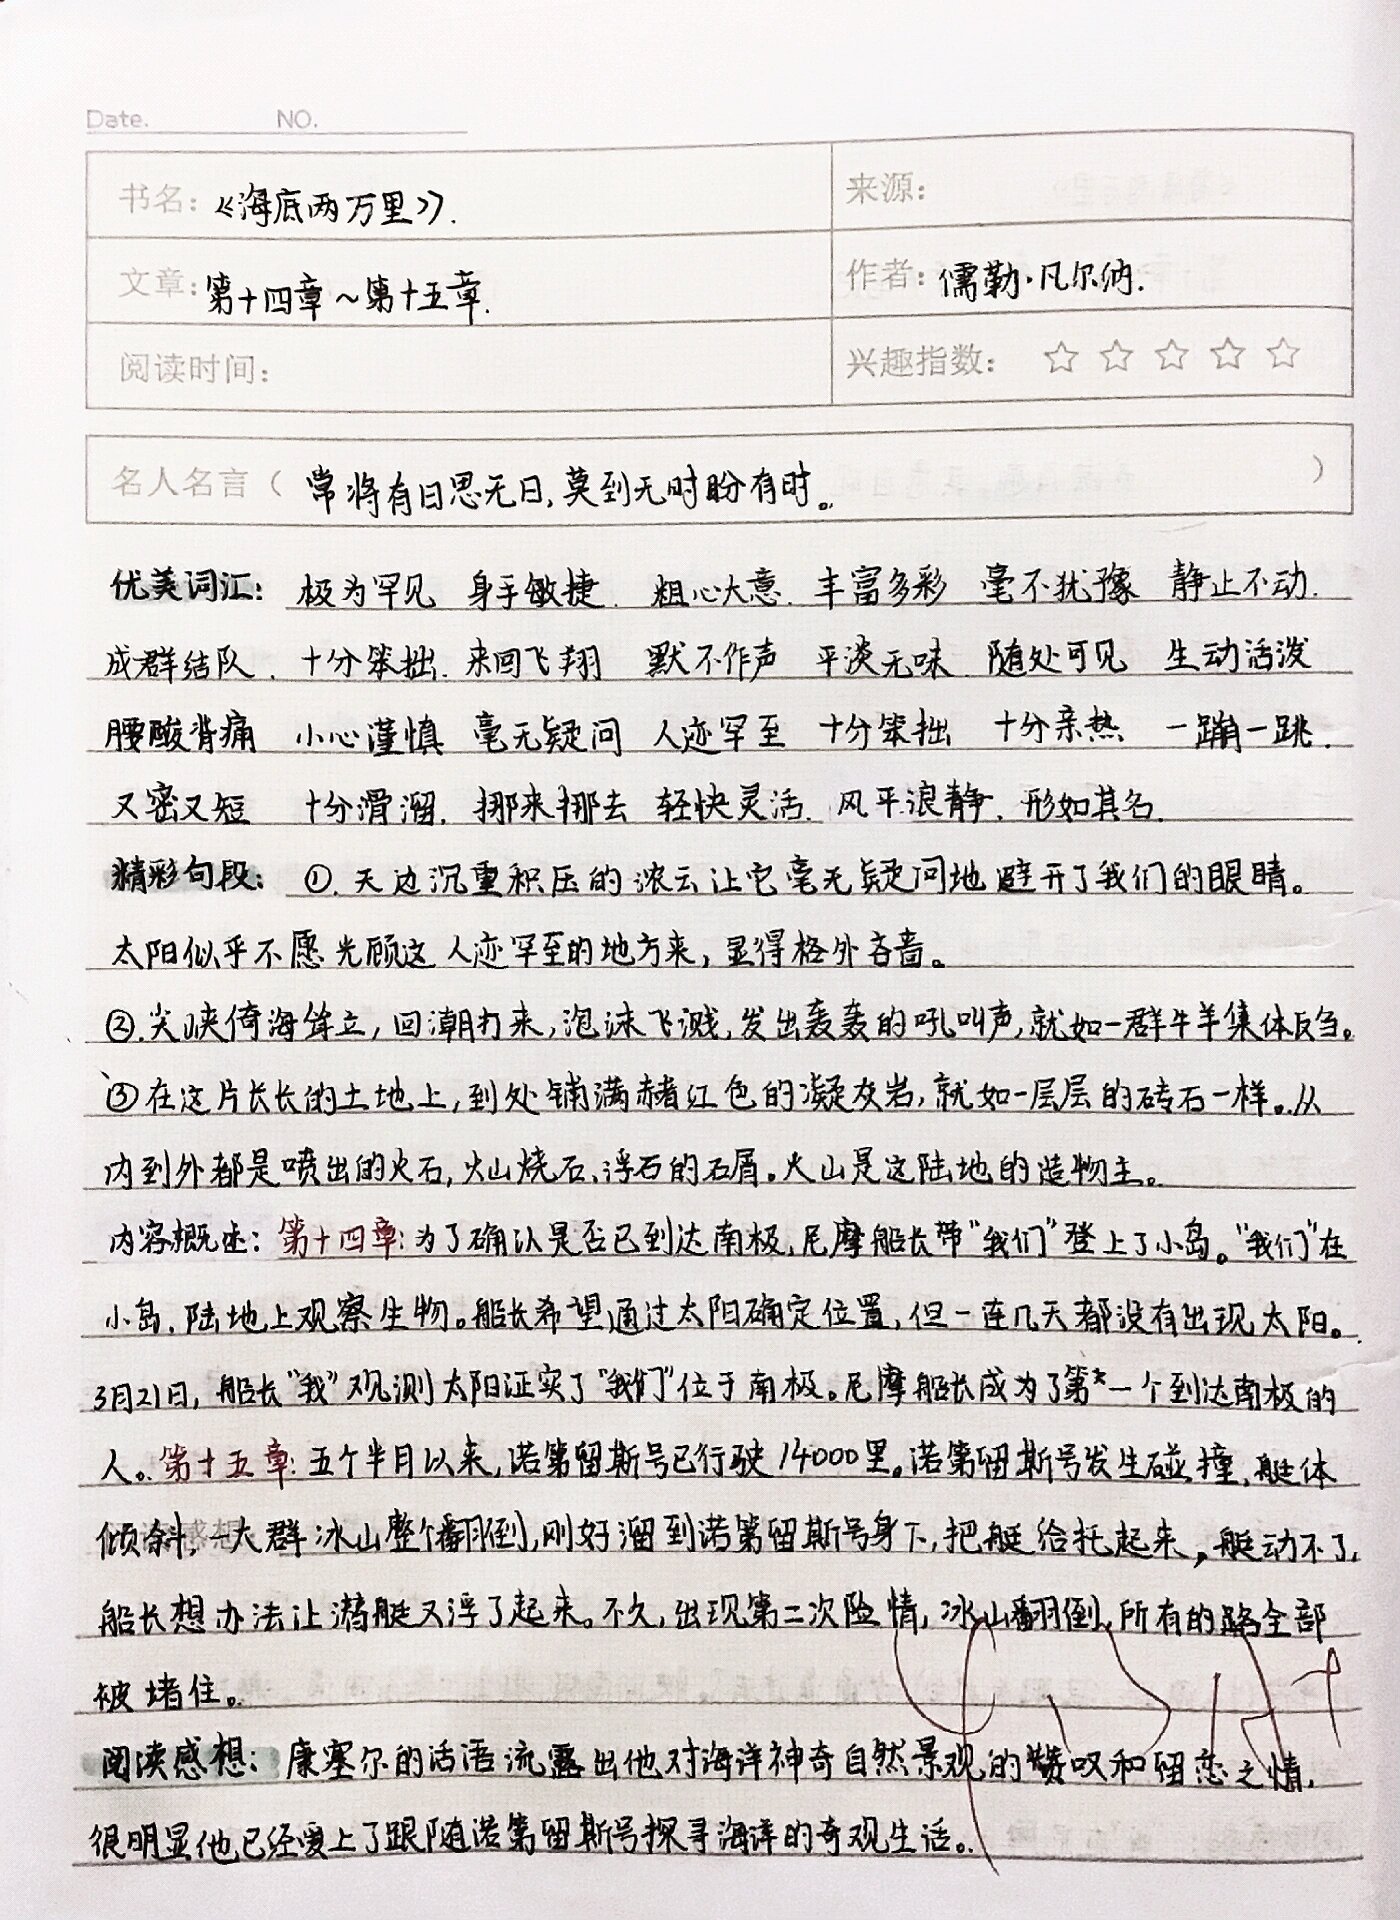 Date. NO.
书名：《海底两万里》. 来源：
文章：第十四章～第十五章. 作者：儒勒·凡尔纳.
阅读时间： 兴趣指数：☆☆☆☆☆
名人名言（常将有日思无日,莫到无时盼有时。）
优美词汇：极为罕见 身手敏捷. 粗心大意. 丰富多彩 毫不犹豫 静止不动.
成群结队. 十分笨拙. 来回飞翔 默不作声 平淡无味. 随处可见 生动活泼
腰酸背痛 小心谨慎 毫无疑问 人迹罕至 十分笨拙 十分亲热 一蹦一跳.
又密又短 十分滑溜. 挪来挪去 轻快灵活. 风平浪静. 形如其名.
精彩句段：①.天边沉重积压的浓云让它毫无疑问地避开了我们的眼睛。
太阳似乎不愿光顾这人迹罕至的地方来,显得格外吝啬。
②.尖峡倚海耸立,回潮打来,泡沫飞溅,发出轰轰的吼叫声,就如一群牛羊集体反刍。
③在这片长长的土地上,到处铺满赭红色的凝灰岩,就如一层层的砖石一样。从
内到外都是喷出的火石,火山烧石、浮石的石屑。火山是这陆地的造物主。
内容概述：第十四章：为了确认是否已到达南极,尼摩船长带“我们”登上了小岛。“我们”在
小岛.陆地上观察生物。船长希望通过太阳确定位置,但一连几天都没有出现太阳。
3月21日,船长“我”观测太阳证实了“我们”位于南极。尼摩船长成为了第一个到达南极的
人。第十五章：五个半月以来,诺第留斯号已行驶14000里。诺第留斯号发生碰撞,艇体
倾斜,一大群冰山整个翻倒,刚好溜到诺第留斯号身下,把艇给托起来,艇动不了,
船长想办法让潜艇又浮了起来。不久,出现第二次险情,冰山翻倒,所有的路全部
被堵住。
阅读感想：康塞尔的话语流露出他对海洋神奇自然景观的赞叹和留恋之情,
很明显他已经爱上了跟随诺第留斯号探寻海洋的奇观生活。